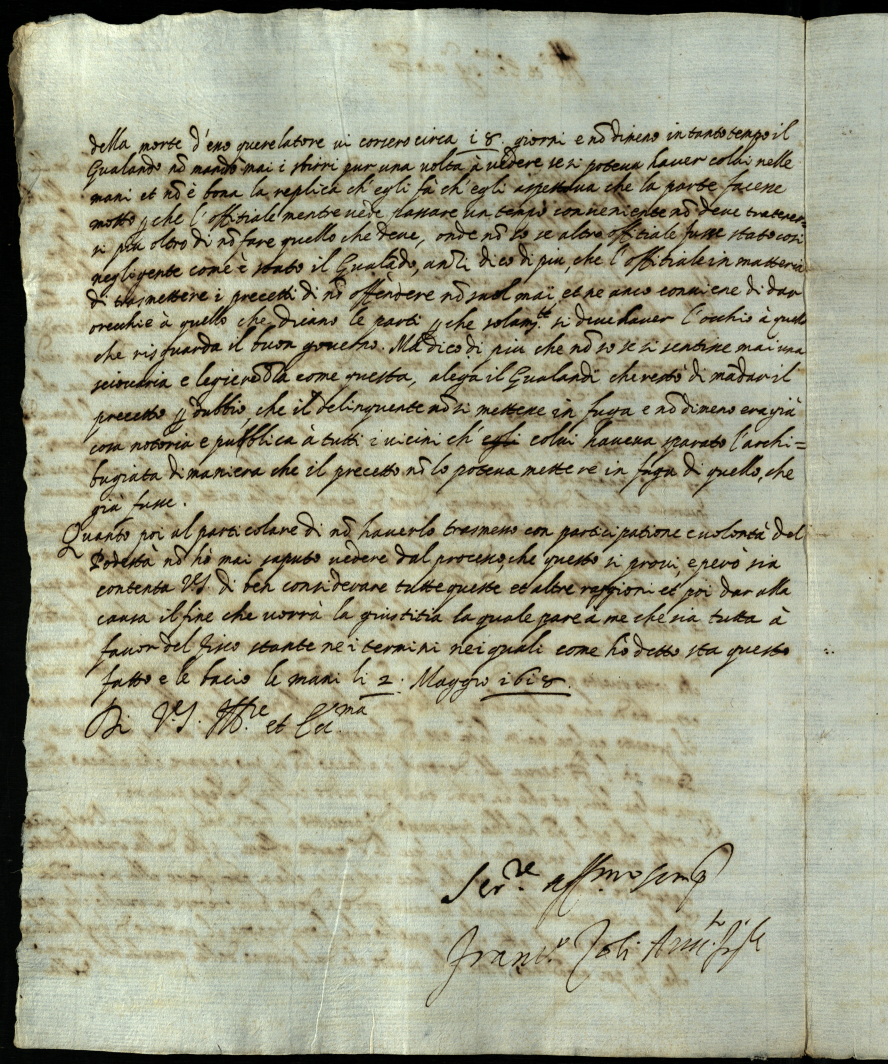 della morte d'esso querelatore vi corsero circa i8 giorni e nō dimeno in tanto tempo il
Gualando nō mandò mai i sbirri pur una volta à vedere se si poteva haver colui nelle
mani et nō è bona la replica ch'egli fà ch'egli aspettava che la parte facesse
motto p che l'offitiale mentre vede passare un tempo conveniente nō deve trattener
si più oltro di nō fare quello che deve, onde nō so se altro offitiale fusse stato così
negligente come è stato il Gualādo, anzi dico di più, che l'offitiale in matteria
di trasmettere i precetti di nō offendere nō suol mai, et ne anco conviene di dar
orecchie à quello che dicano le parti p che solam.te si deve haver l'occhio à quello
che risguarda il buon governo. Ma dico di più che nō so se si sentisse mai una
e legierezza come questa, alega il Gualandi che restò di mādar il
precetto p dubbio che il delinquente nō si mettesse in fuga e nō dimeno era già
cosa notoria e pubblica à tutti i vicini ch' egli colui haveva sparato l'archi=
bugiata di maniera che il precetto nō lo poteva mettere in fuga di quello, che
già fusse.
Quanto poi al particolare di nō haverlo trasmesso con participatione e volontà del
Podestà nō hò mai saputo vedere dal processo, che questo si provi, e però sia
contenta V.S. di ben considerare tutte queste et altre raggioni et poi dar alla
causa il fine che vorrà la giustitia la quale pare à me che sia tutta à
favor del fisco stante ne i termini ne i quali come hò detto sta questo
fatto e le bacio le mani li 2. Maggio i6i8.
Di V.S. Ill.re et Ecc.ma
Ser.re aff.mo semp
Franc.o